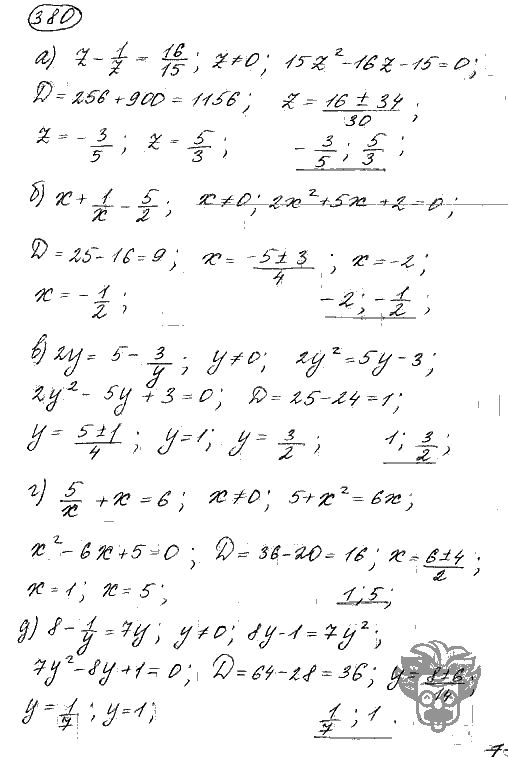 380
а) z - 1/z = 16/15; z≠0; 15z² - 16z - 15 = 0;
D = 256 + 900 = 1156; z = (16 ± 34)/30;
z = -3/5; z = 5/3; -3/5; 5/3;
б) x + 1/x - 5/2; x≠0; 2x² + 5x + 2 = 0;
D = 25 - 16 = 9; x = (-5 ± 3)/4; x = -2;
x = -1/2; -2; -1/2;
в) 2y = 5 - 3/y; y≠0; 2y² = 5y - 3;
2y² - 5y + 3 = 0; D = 25 - 24 = 1;
y = (5 ± 1)/4; y = 1; y = 3/2; 1; 3/2;
г) 5/x + x = 6; x≠0; 5 + x² = 6x;
x² - 6x + 5 = 0; D = 36 - 20 = 16; x = (6 ± 4)/2;
x = 1; x = 5; 1; 5;
д) 8 - 1/y = 7y; y≠0; 8y - 1 = 7y²;
7y² - 8y + 1 = 0; D = 64 - 28 = 36; y = (8 ± 6)/14;
y = 1/7; y = 1; 1/7; 1.